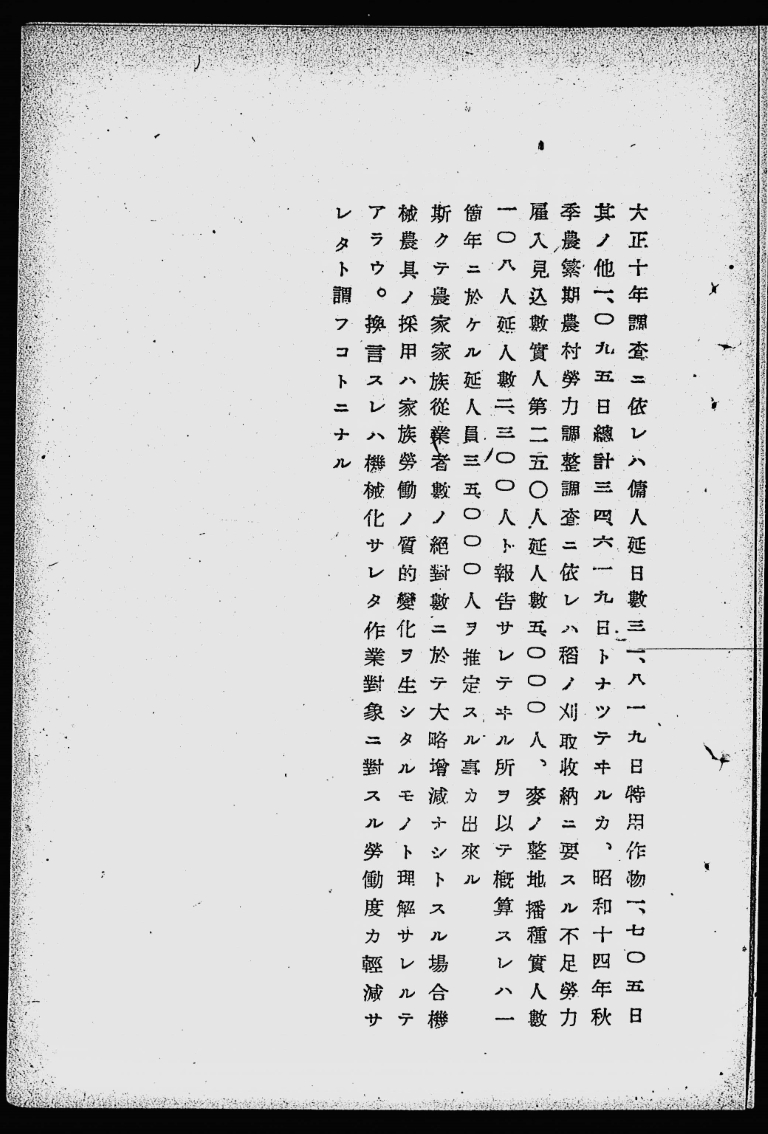 大正十年調査ニ依レハ傭人延日數三一、八一九日特用作物一、七〇五日
其ノ他一、〇九五日總計三四、六一九日トナツテヰルカ、昭和十四年秋
季農繁期農村勞力調整調査ニ依レハ稻ノ刈取收納ニ要スル不足勞力
雇入見込數實人第二五〇人延人數五、〇〇〇人、麥ノ整地播種實人數
一〇八人延人數二、三〇〇人ト報告サレテヰル所ヲ以テ概算スレハ一
箇年ニ於ケル延人員三五、〇〇〇人ヲ推定スル事カ出來ル
斯クテ農家家族從業者數ノ絕對數ニ於テ大略增減ナシトスル場合機
械農具ノ採用ハ家族勞働ノ質的變化ヲ生シタルモノト理解サレルテ
アラウ。換言スレハ機械化サレタ作業對象ニ對スル勞働度カ輕減サ
レタト謂フコトニナル